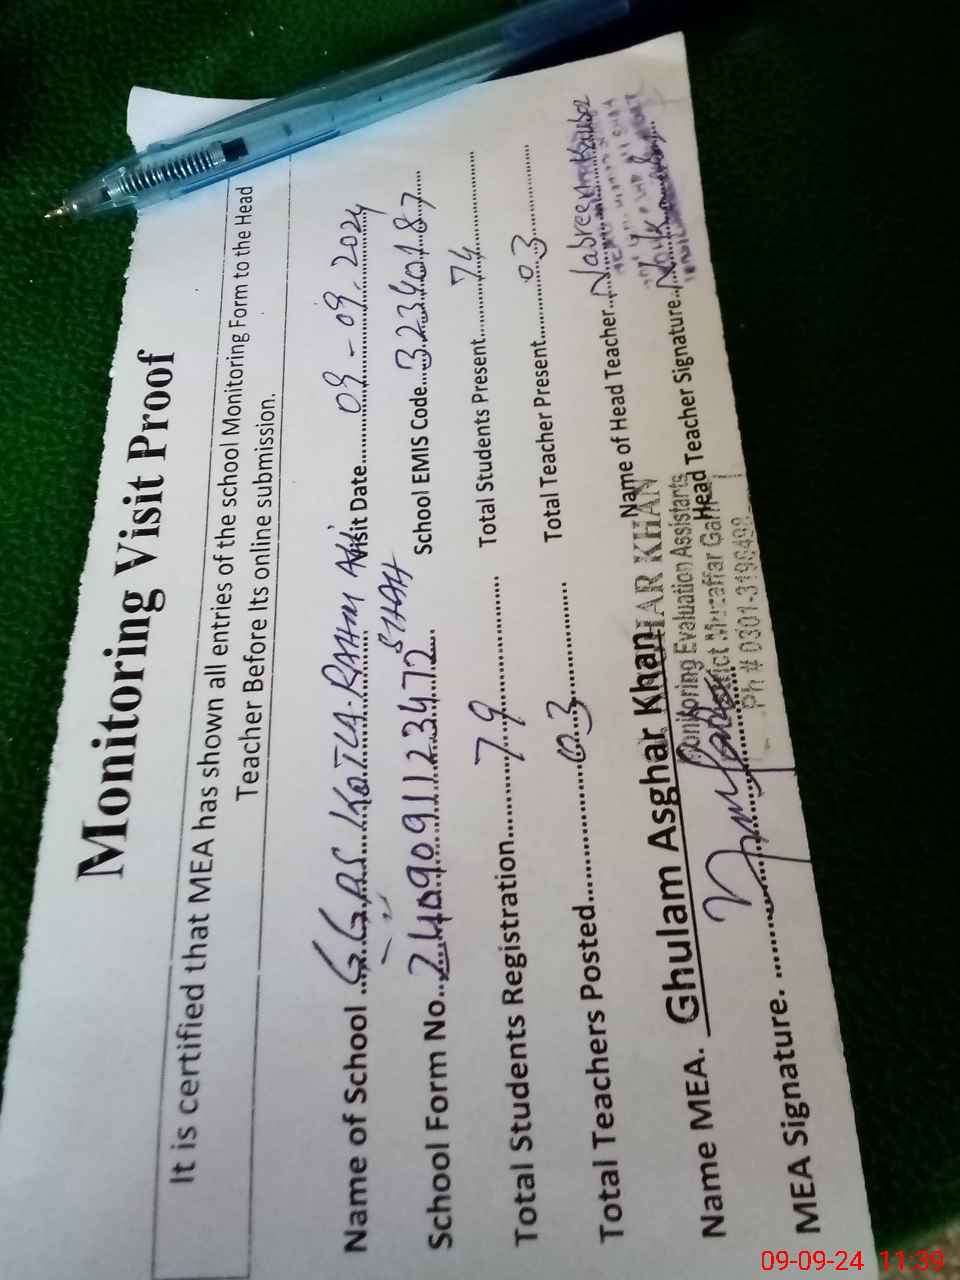 Monitoring Visit Proof
It is certified that MEA has shown all entries of the school Monitoring Form to the Head
Teacher Before Its online submission.
Name of School ..G.G.P.S KOTLA RAHM ALI SHAH Visit Date......09-09-2024
School Form No...2409091123472... School EMIS Code...32340187...
Total Students Registration.....79..... Total Students Present.....74.....
Total Teachers Posted.....03..... Total Teacher Present.....03.....
Name MEA. Ghulam Asghar Khan Name of Head Teacher..Nabreen Kausar
MEA Signature. .......... Head Teacher Signature..........
HAR KHAN
Monitoring Evaluation Assistants
District Muzaffar Garh
Ph # 0301-3198498
09-09-24 11:39